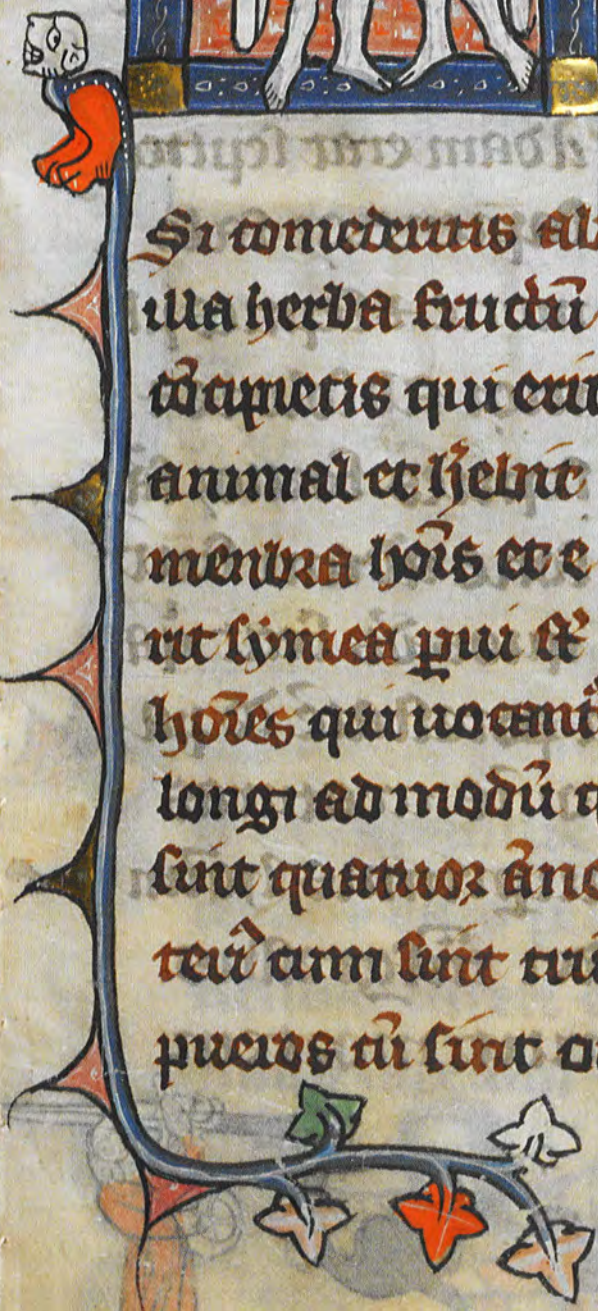 Si comederitis al
illa herba fructū
cōcipietis qui erit
animal et h̄ebit
menbra hoīs et e
rit symea p̱ui st̄
hoīes qui uocant᷑
longi ad modū c
sint quatuor ānо
cum sint tri
pueros cū sint